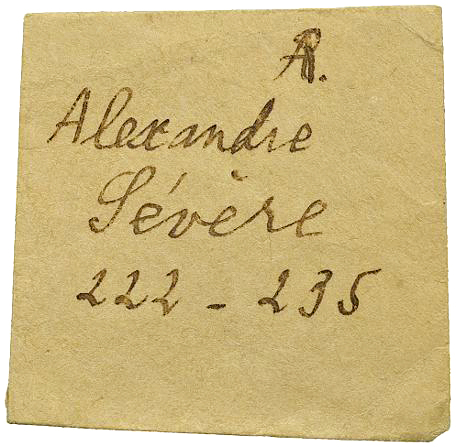 AR.
Alexandre
Sévère
222 - 235